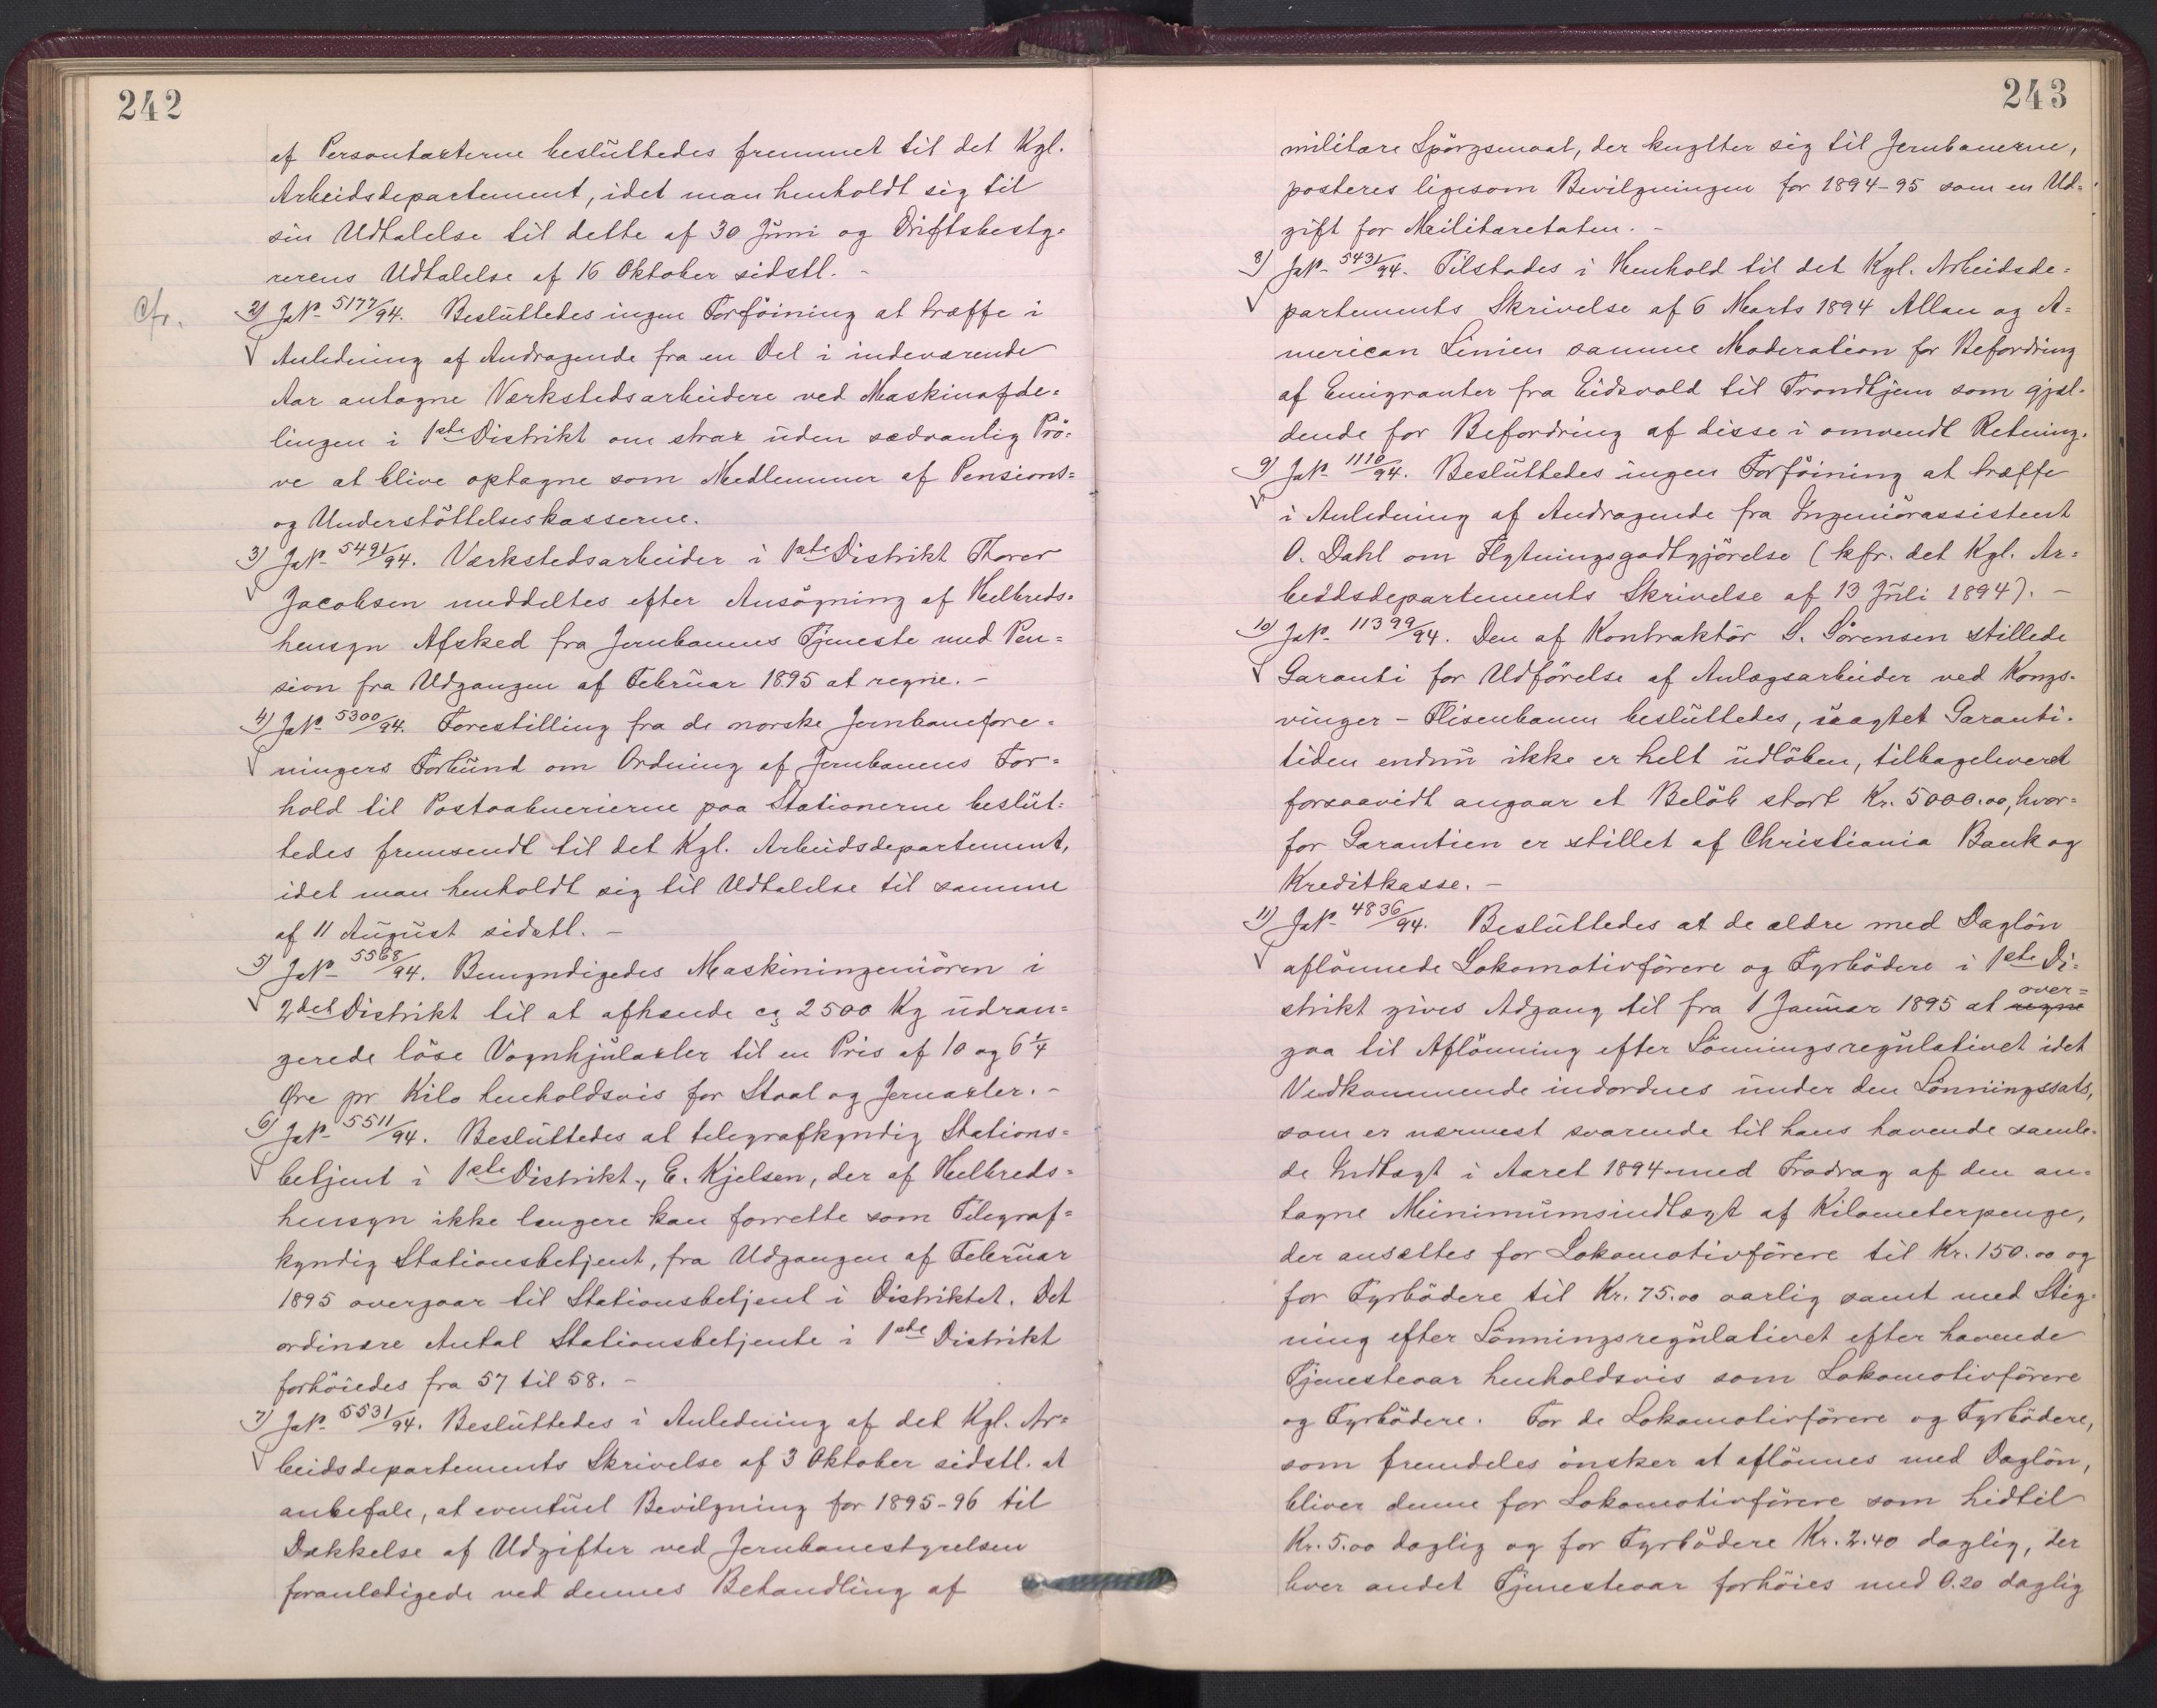 242
af Persontaxterne besluttedes fremmet til det Kgl.
Arbeidsdepartement, idet man henholdt sig til
sin Udtalelse til dette af 30 Juni og Driftsbesty=
rerens Udtalelse af 16 Oktober sidstl. -
cfr.
2) JNo 5177/94. Besluttedes ingen Forföining at træffe i
Anledning af Andragende fra en Del i indeværende
Aar antagne Værkstedsarbeidere ved Maskinafde=
lingen i 1ste Distrikt om strax uden sædvanlig Prö=
ve at blive optagne som Medlemmer af Pensions=
og Understöttelseskasserne.
3) JNo 5491/94. Værkstedsarbeider i 1ste Distrikt Thorer
Jacobsen meddeltes efter Ansögning af Helbreds=
hensyn Afsked fra Jernbanens Tjeneste med Pen=
sion fra Udgangen af Februar 1895 at regne. -
4) JNo 5300/94. Forestilling fra de norske Jernbanefore=
ningers Forbund om Ordning af Jernbanens For=
hold til Postaabnerierne paa Stationerne beslut=
tedes fremsendt til det Kgl. Arbeidsdepartement,
idet man henholdt sig til Udtalelse til samme
af 11 August sidstl. -
5) JNo 5568/94. Bemyndigedes Maskiningeniören i
2det Distrikt til at afhænde ca 2500 Kg udran=
gerede löse Vognhjulaxler til en Pris af 10 og 6 1/4
Øre pr Kilo henholdsvis for Staal og Jernaxler. -
6) JNo 5511/94. Besluttedes at telegrafkyndig Stations=
betjent i 1ste Distrikt, E. Kjelsen, der af Helbreds=
hensyn ikke længere kan forrette som Telegraf=
kyndig Stationsbetjent, fra Udgangen af Februar
1895 overgaar til Stationsbetjent i Distriktet. Det
ordinære Antal Stationsbetjente i 1ste Distrikt
forhöiedes fra 57 til 58. -
7) JNo 5531/94. Besluttedes i Anledning af det Kgl. Ar=
beidsdepartements Skrivelse af 3 Oktober sidstl. at
anbefale, at eventuel Bevilgning for 1895-96 til
Dækkelse af Udgifter ved Jernbanestyrelsen
foranledigede ved dennes Behandling af
243
militære Spörgsmaal, der knytter sig til Jernbanerne,
posteres ligesom Bevilgningen for 1894-95 som en Ud=
gift for Militæretaten. -
8) JNo 5431/94. Tilstodes i Henhold til det Kgl. Arbeidsde=
partements Skrivelse af 6 Marts 1894 Allan og A=
merican Linien samme Moderation for Befordring
af Emigranter fra Eidsvold til Trondhjem som gjæl=
dende for Befordring af disse i omvendt Retning.
9) JNo 1110/94. Besluttedes ingen Forföining at træffe
i Anledning af Andragende fra Ingeniörassistent
O. Dahl om Flytningsgodtgjörelse (kfr. det Kgl. Ar=
beidsdepartements Skrivelse af 13 Juli 1894). -
10) JNo 11399/94. Den af Kontraktör S. Sörensen stillede
Garanti for Udförelse af Anlægsarbeider ved Kongs=
vinger - Flisenbanen besluttedes, uagtet Garanti=
tiden endnu ikke er helt udlöben, tilbageleveret
forsaavidt angaar et Belöb stort Kr. 5000.00, hvor=
for Garantien er stillet af Christiania Bank og
Kreditkasse. -
11) JNo 4836/94. Besluttedes at de ældre med Daglön
aflönnede Lokomotivförere og Fyrbödere i 1ste Di=
strikt gives Adgang til fra 1 Januar 1895 at regne over=
gaa til Aflönning efter Lönningsregulativet idet
Vedkommende indordnes under den Lönningssats,
som er nærmest svarende til hans havende samle=
de Indtægt i Aaret 1894 med Fradrag af den an=
tagne Minimumsindtægt af Kilometerpenge,
der ansættes for Lokomotivförere til Kr. 150.00 og
for Fyrbödere til Kr. 75.00 aarlig samt med Stig=
ning efter Lönningsregulativet efter havende
Tjenesteaar henholdsvis som Lokomotivförere
og Fyrbödere. For de Lokomotivförere og Fyrbödere,
som fremdeles önsker at aflönnes med Daglön,
bliver denne for Lokomotivförere som hidtil
Kr. 5.00 daglig og for Fyrbödere Kr. 2.40 daglig, der
hver andet Tjenesteaar forhöies med 0.20 daglig